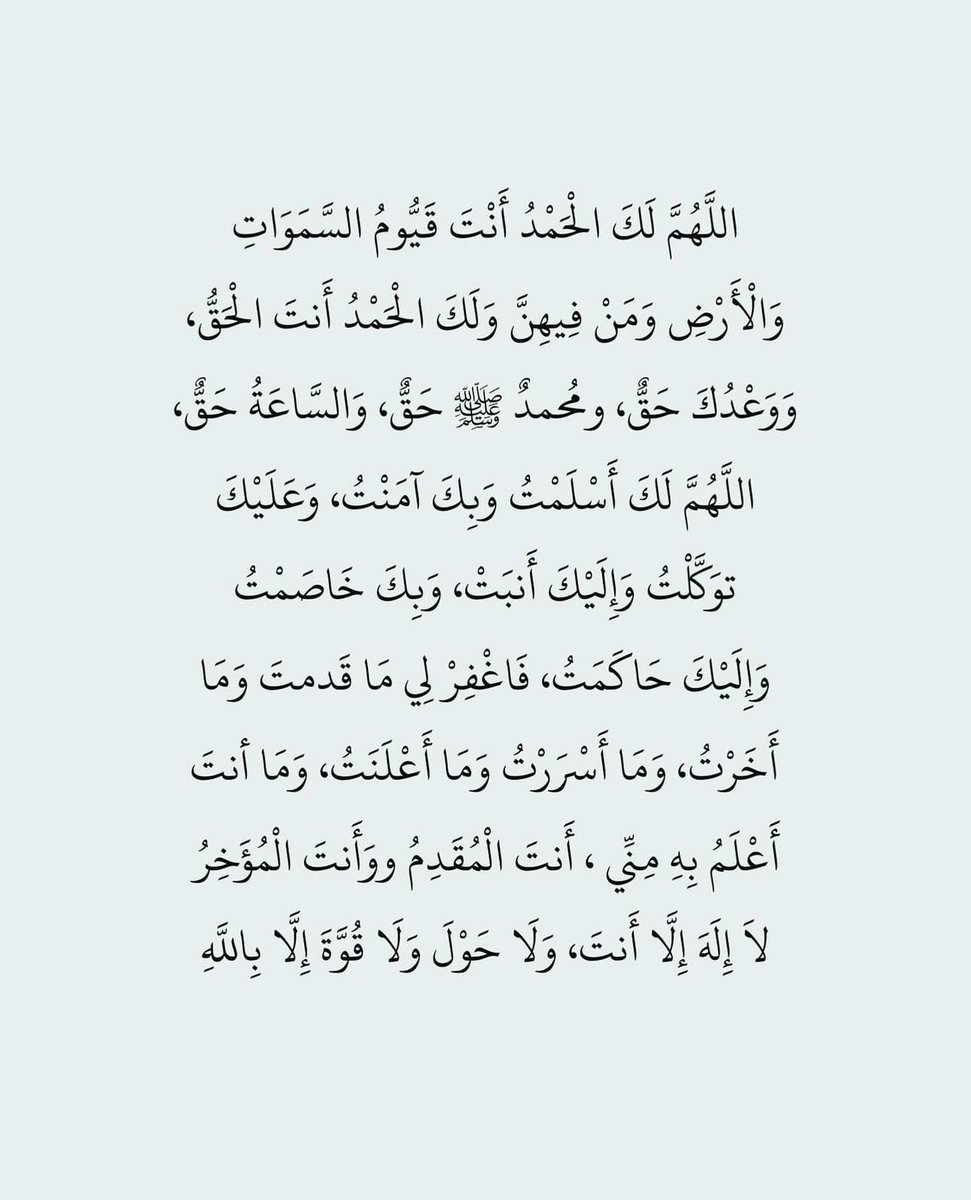 اللَّهُمَّ لَكَ الْحَمْدُ أَنْتَ قَيُّومُ السَّمَوَاتِ
وَالْأَرْضِ وَمَنْ فِيهِنَّ وَلَكَ الْحَمْدُ أَنتَ الْحَقُّ،
وَوَعْدُكَ حَقٌّ، ومُحمدٌ ﷺ حَقٌّ، وَالسَّاعَةُ حَقٌّ،
اللَّهُمَّ لَكَ أَسْلَمْتُ وَبِكَ آمَنْتُ، وَعَلَيْكَ
توَكَّلْتُ وَإِلَيْكَ أَنبَتْ، وَبِكَ خَاصَمْتُ
وَإِلَيْكَ حَاكَمَتُ، فَاغْفِرْ لِي مَا قَدمتَ وَمَا
أَخَرْتُ، وَمَا أَسْرَرْتُ وَمَا أَعْلَنَتُ، وَمَا أنتَ
أَعْلَمُ بِهِ مِنِّي ، أَنتَ الْمُقَدِمُ ووَأَنتَ الْمُؤَخِرُ
لاَ إِلَهَ إِلَّا أَنتَ، وَلَا حَوْلَ وَلَا قُوَّةَ إِلَّا بِاللَّهِ